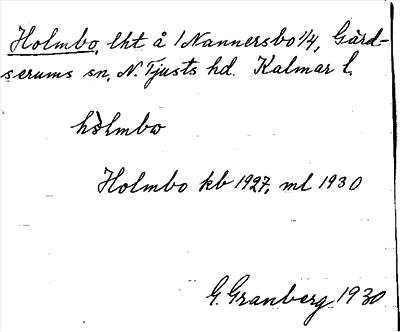 Holmbo, lht å 1 Nannersbo 1/4, Gärd-
serums sn, N. Tjusts hd. Kalmar l.
hòlmbω
Holmbo kb 1927, ml 1930
G. Granberg 1930